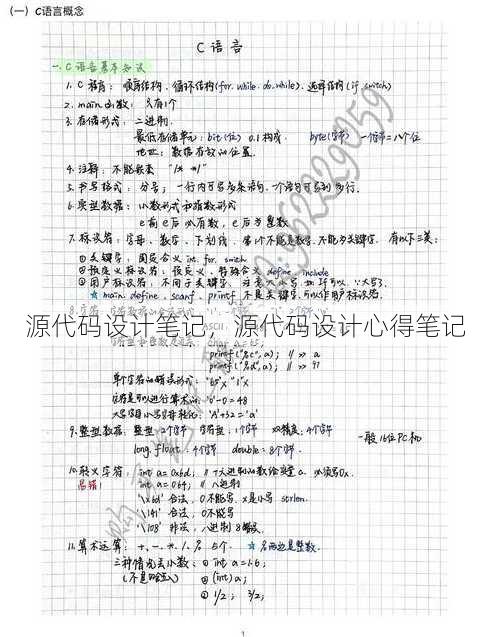 （一）C语言概念
C 语言
一. C 语言基本知识
1. C 程序： 顺序结构. 循环结构(for. while. do..while). 选择结构(if. switch)
2. main 函数： 只有1个
3. 存储形式： 二进制.
最低存储单元: bit(位) 0.1 构成. byte(字节) 一字节=八个位
地址: 数据存放的位置.
4. 注释: 不能嵌套 "/* */"
5. 书写格式: 分号; 一行内可写多条语句. 一个语句可写到多行.
6. 实型数据: 小数形式和指数形式
e前e后必有数, e后为整数
7. 标识符: 字母、数字、下划线. 第1个不能是数字. 不能为关键字. 有以下三类:
①关键字: 固定含义 int. for. switch
②预定义标识符: 预定义、特殊含义 define include
③用户标识符: 不同于关键字
☆ main. define. scanf. printf 不是关键字.可以作用户标识符.
源代码设计笔记，源代码设计心得笔记
printf("%c", a); // >> a
printf("%d", a); // >> 97
单个字符的错误形式: "65"x "1"x
字符是可以进行算术运: '0'-0=48
大写与小写字母转化: 'A'+32='a'
9. 整型数据: 整型: 2个字节 字符型: 1个字节 双精度: 4个字节
long. float 4个字节 double: 8个字节.
一般16位PC机
10. 转义字符. int a=0x6d; // 十六进制的数给变量 a. 必须写0x.
易错! int a=064; // 八进制
'\x6d' 合法, 0不能写. x是小写 strlen.
'\141' 合法, 0不能写
'\108' 非法, 八进制 8错误.
11. 算术运算: +. -. *. /. % 5个. ☆ %两边是整数.
三种情况去小数: ① int a=1.6;
(不是四舍五入) ② (int)a;
③ 1/2; 3/2;
1